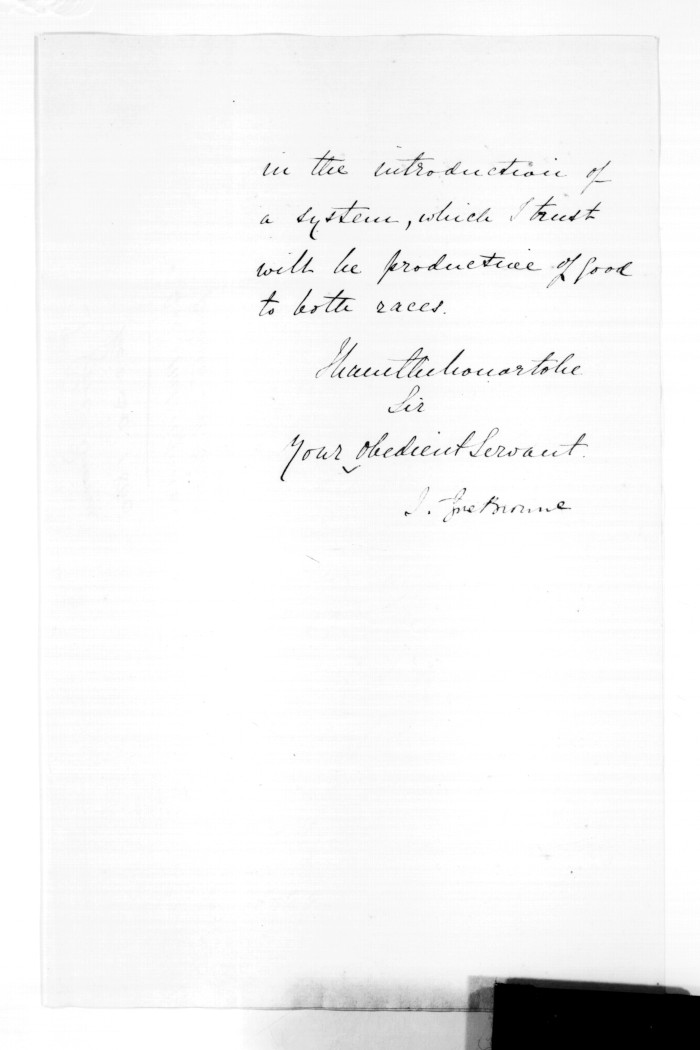 in the introduction of
a system, which I trust
will be productive of good
to both races.
I have the honor to be
Sir
Your Obedient Servant.
Browne